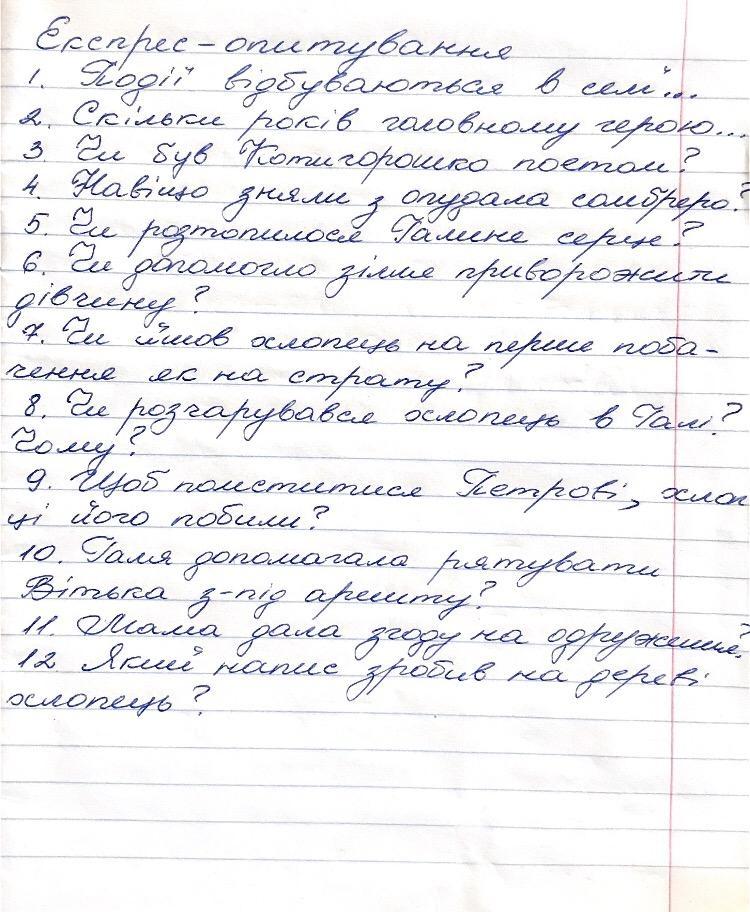 Експрес-опитування
1. Події відбуваються в селі...
2. Скільки років головному герою...
3. Чи був Котигорошко поетом?
4. Навіщо зняли з опудала сомбреро?
5. Чи розтопилося Галине серце?
6. Чи допомогло зілля приворожити
дівчину?
7. Чи йшов хлопець на перше поба-
чення як на страту?
8. Чи розчарувався хлопець в Галі?
Чому?
9. Щоб помститися Петрові, хлоп
ці його побили?
10. Галя допомагала рятувати
Вітька з-під арешту?
11. Мама дала згоду на одруження?
12 Який напис зробив на дереві
хлопець?